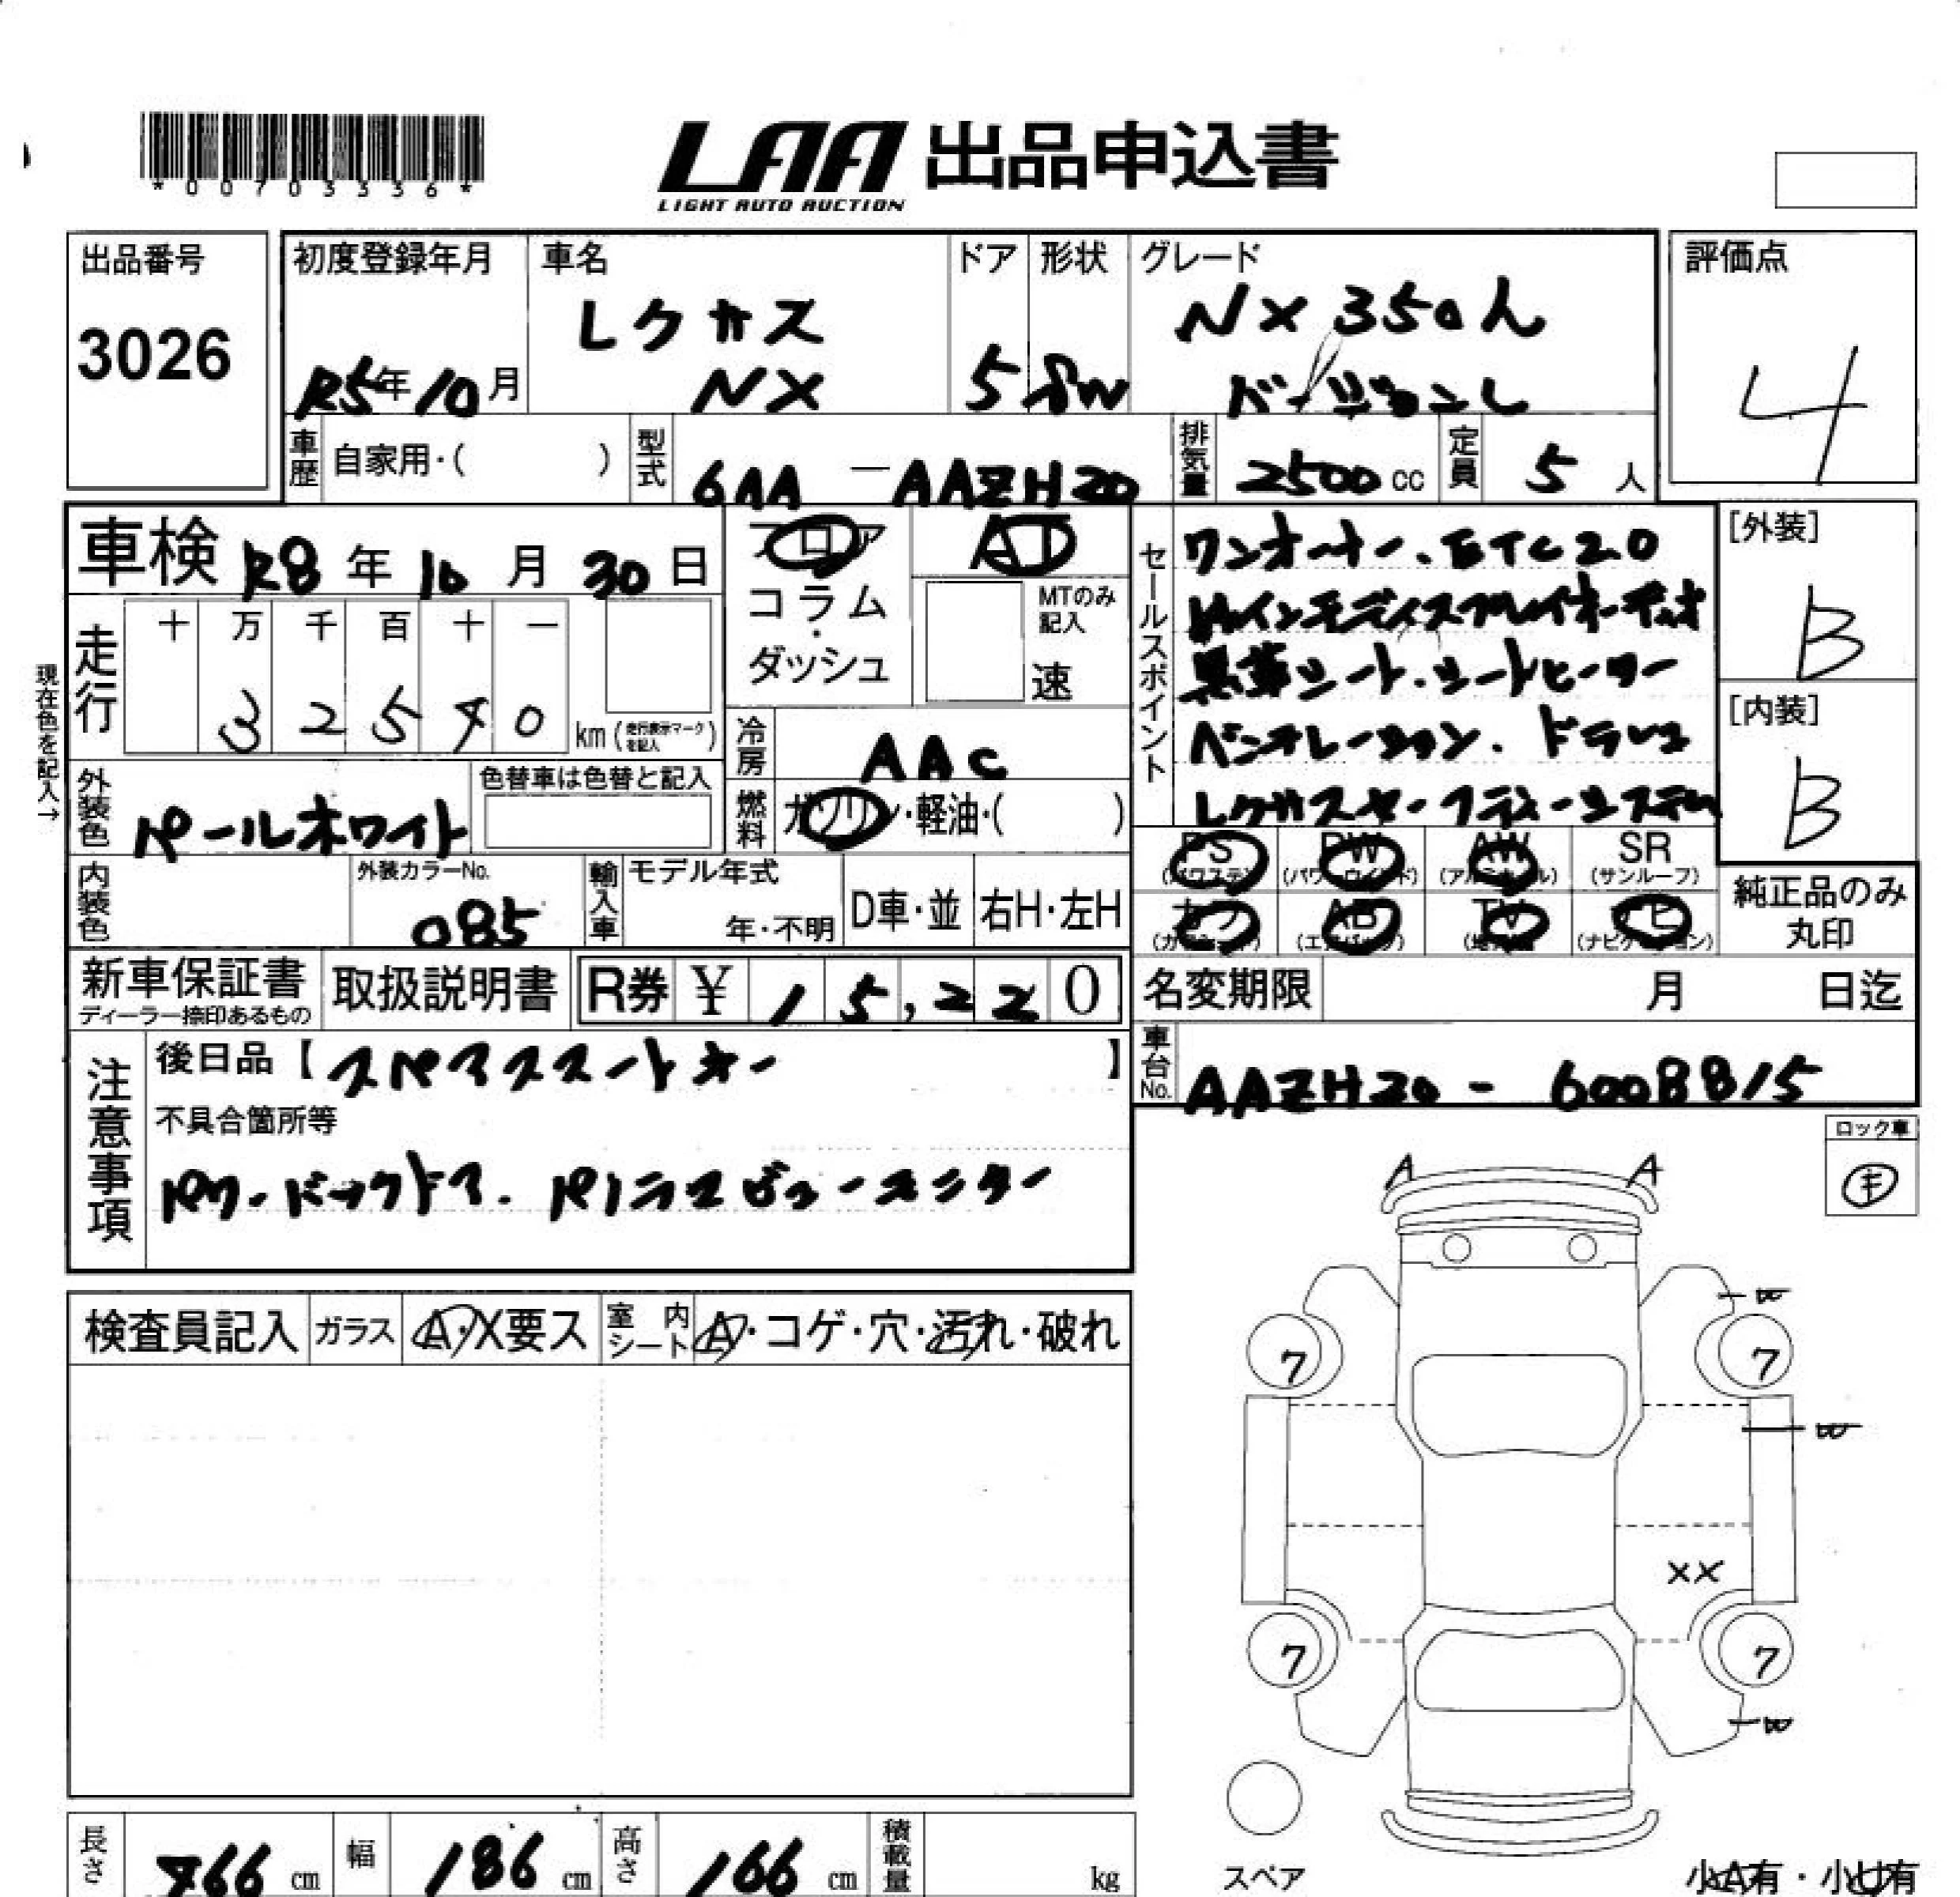 *00703336*
LAA 出品申込書
LIGHT AUTO AUCTION
出品番号
3026
初度登録年月
R5年10月
車名
レクサス
NX
ドア
5
形状
SW
グレード
NX350h
バージョンL
評価点
4
車歴
自家用・( )
型式
6AA－AAZH20
排気量
2500cc
定員
5人
車検 R8年10月30日
フロア
コラム
・
ダッシュ
AT
MTのみ
記入
速
セールスポイント
ワンオーナー.ETC2.0
14インチディスプレイオーディオ
黒革シート.シートヒーター
ベンチレーション.ドラレコ
レクサスセーフティーシステム
[外装]
B
[内装]
B
現在色を記入→
走行
十 万 千 百 十 一
3 2 5 4 0
km(走行表示マークを記入)
冷房
AAC
燃料
ガソリン・軽油・( )
外装色
パールホワイト
色替車は色替と記入
内装色
外装カラーNo.
085
輸入車
モデル年式
年・不明
D車・並
右H・左H
PS
(パワステ)
PW
(パワーウインド)
AW
(アルミホイール)
SR
(サンルーフ)
カワ
AB
(エアバッグ)
TV
ナビ
(ナビゲーション)
純正品のみ
丸印
新車保証書
ディーラー捺印あるもの
取扱説明書
R券 ¥ 15,220
名変期限
月 日迄
車台No.
AAZH20－6008815
注意事項
後日品【スペアスマートキー】
不具合箇所等
パワーバックドア.パノラマビューモニター
ロック車
キ
検査員記入
ガラス
A・X要ス
室内シート
A・コゲ・穴・汚れ・破れ
A
A
W
7
7
W
XX
7
7
W
スペア
小A有・小U有
長さ
466cm
幅
186cm
高さ
166cm
積載量
kg